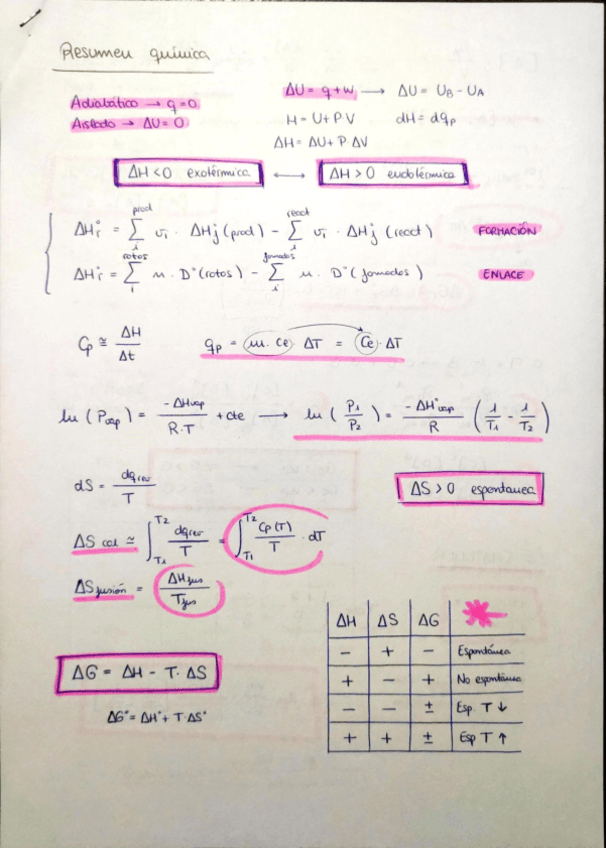 Resumen química
ΔU = q + w → ΔU = U_B - U_A
Adiabático → q = 0
Aislado → ΔU = 0
H = U + P·V dH = dq_p
ΔH = ΔU + P·ΔV
ΔH < 0 exotérmica ↔ ΔH > 0 endotérmica
ΔH°r = Σ_i^prod νi · ΔH°f (prod) - Σ_i^react νi · ΔH°f (react) FORMACIÓN
ΔH°r = Σ_i^rotos n · D°(rotos) - Σ_i^formados n · D°(formados) ENLACE
Cp ≅ ΔH/Δt q_p = m·Ce · ΔT = Ce · ΔT
ln (P_vap) = -ΔH_vap/R·T + cte → ln (P1/P2) = -ΔH°vap/R (1/T1 - 1/T2)
dS = dq_rev/T ΔS > 0 espontanea
ΔS cal ≅ ∫_T1^T2 dq_rev/T = ∫_T1^T2 Cp(T)/T · dT
ΔS fusión = ΔH fus/T fus
ΔH ΔS ΔG
- + - Espontánea
+ - + No espontánea
- - ± Esp T ↓
+ + ± Esp T ↑
ΔG = ΔH - T·ΔS
ΔG° = ΔH° + T·ΔS°